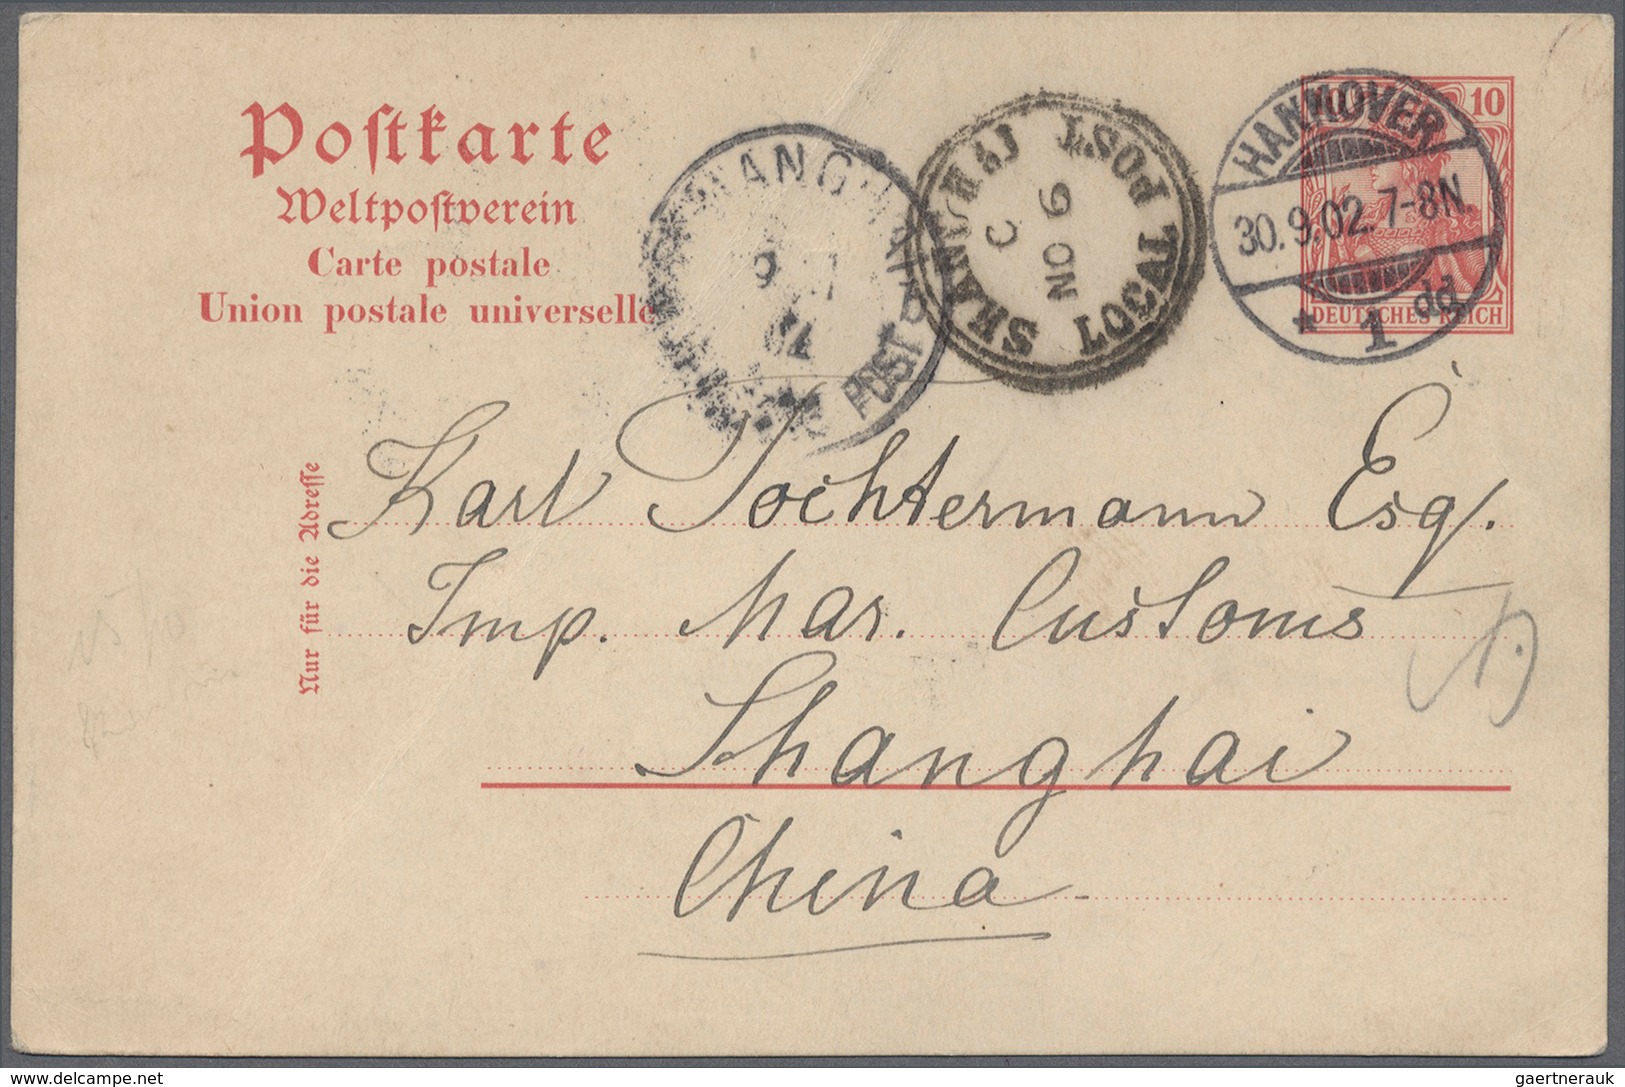 Postkarte
Weltpostverein
Carte postale
Union postale universelle
HANNOVER
30.9.02. 7-8N.
* 1 dd
10 10
DEUTSCHES REICH
SHANGHAI
LOCAL POST
C
NO 6
SHANGHAI
POST
Nur für die Adresse
Karl Tochtermann Esq.
Imp. Mar. Customs
Shanghai
China
1)
www.delcampe.net
gaertnerauk